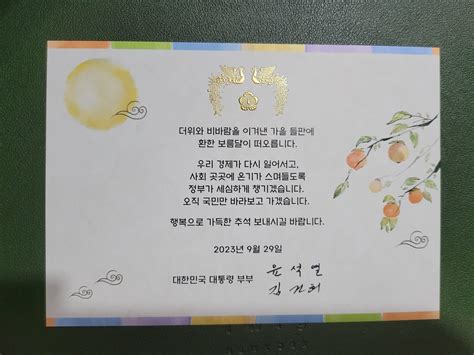 더위와 비바람을 이겨낸 가을 들판에
환한 보름달이 떠오릅니다.
우리 경제가 다시 일어서고,
사회 곳곳에 온기가 스며들도록
정부가 세심하게 챙기겠습니다.
오직 국민만 바라보고 가겠습니다.
행복으로 가득한 추석 보내시길 바랍니다.
2023년 9월 29일
대한민국 대통령 부부 윤석열
김건희